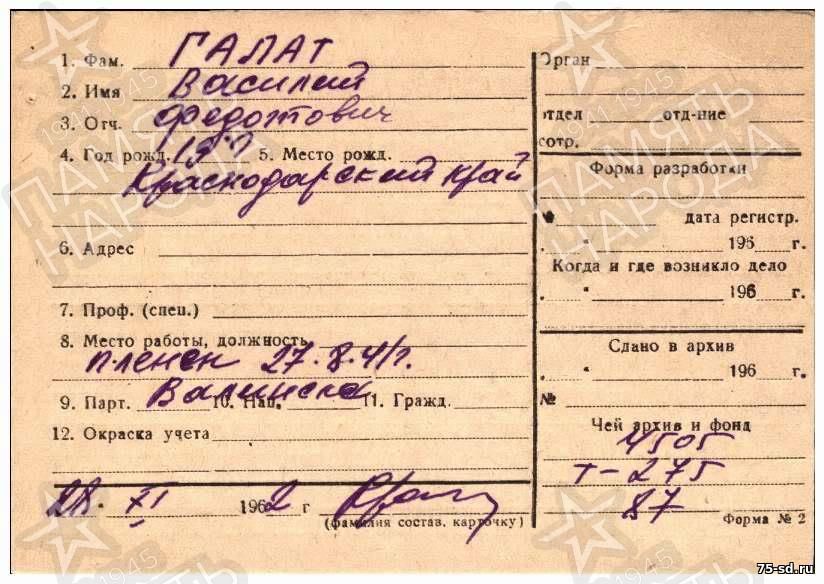 1. Фам. ГАЛАТ
2. Имя Василий
3. Отч. Федотович
4. Год рожд. 5. Место рожд.
Краснодарский край
6. Адрес
7. Проф. (спец.)
8. Место работы, должность
пленен 27.8.41г.
9. Парт. 10. Нац. 11. Гражд.
12. Окраска учета
28. XI 1962 г
(фамилия состав. карточку)
Орган
отдел отд-ние
сотр.
Форма разработки
№ дата регистр.
" 196 г.
Когда и где возникло дело
" 196 г.
Сдано в архив
" 196 г.
№
Чей архив и фонд
4505
т-275
87
Форма № 2
ПАМЯТЬ НАРОДА
1941 1945
75-sd.ru